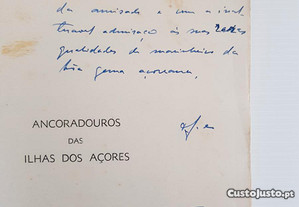 da amizade e com a sincera
admiração às suas raras
qualidades de marinheiro da
boa gema açoreana,
ANCORADOUROS
DAS
ILHAS DOS AÇORES
CustoJusto.pt